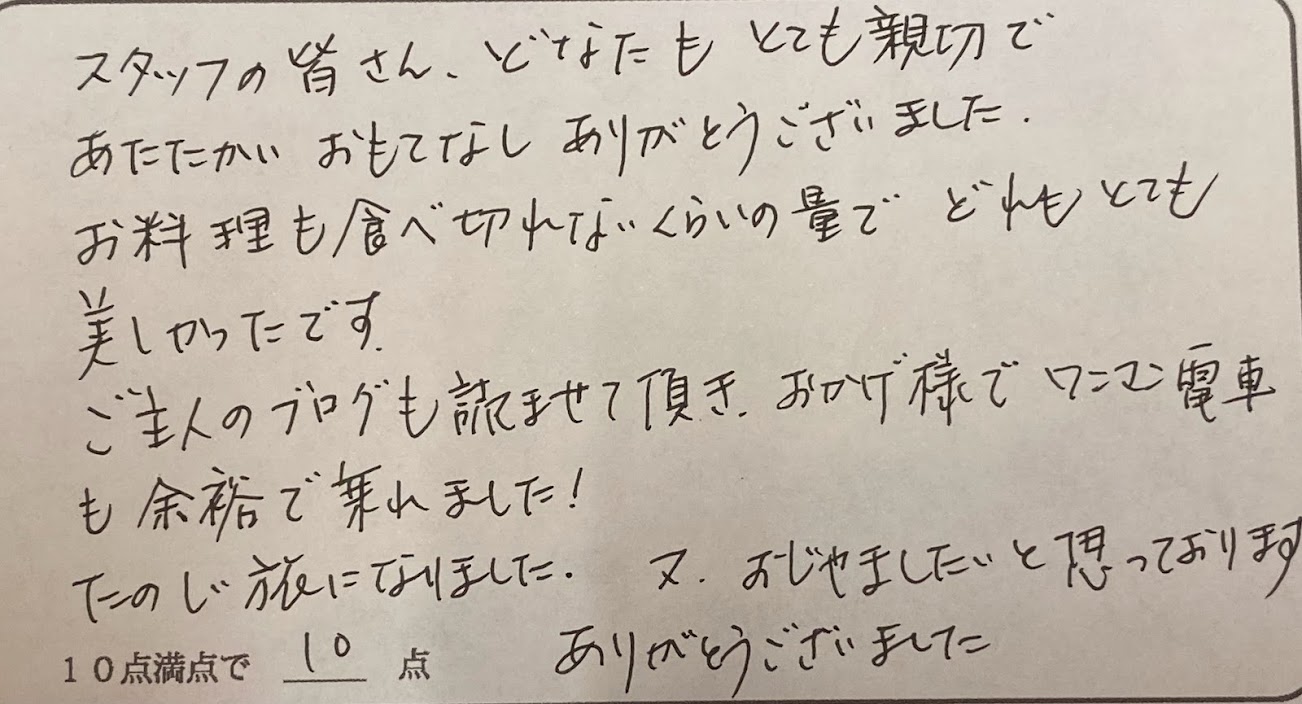 スタッフの皆さん、どなたも とても親切で
あたたかい おもてなし ありがとうございました.
お料理も食べ切れないくらいの量で どれもとても
美しかったです.
ご主人のブログも読ませて頂き、おかげ様でワンマン電車
も余裕で乗れました!
たのしい旅になりました. 又、おじゃましたいと思っております
１０点満点で 10 点 ありがとうございました